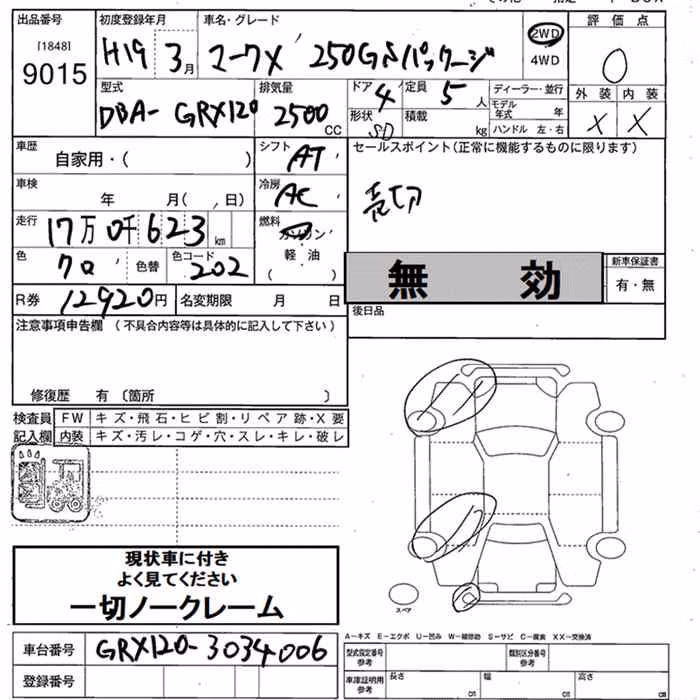 出品番号 初度登録年月 車名・グレード 2WD 評価点
[1848] H19 3月 マークX 250G Sパッケージ 4WD 0
9015
型式 排気量 ドア 4 定員 5人 ディーラー・並行 外装 内装
DBA- GRX120 2500cc 形状 SD 積載 kg モデル年式 年 X X
ハンドル 左・右
車歴 自家用・( ) シフト AT セールスポイント(正常に機能するものに限ります)
車検 年 月( , 日) 冷房 AC 売切
走行 17万0千623km 燃料 ガソリン
軽油
( )
色 クロ 色替 色コード 202 無効 新車保証書
有・無
R券 12920円 名変期限 月 日 後日品
注意事項申告欄 (不具合内容等は具体的に記入して下さい)
修復歴 有 〔箇所 〕
検査員 FW キズ・飛石・ヒビ割・リペア跡・X要
記入欄 内装 キズ・汚レ・コゲ・穴・スレ・キレ・破レ
現状車に付き
よく見てください
一切ノークレーム
スペア
A-キズ E-エクボ U-凹み W-補修跡 S-サビ C-腐食 XX-交換済
車台番号 GRX120-3034006 型式指定番号 参考 類別区分番号 参考
登録番号 車庫証明用 参考 長さ cm 幅 cm 高さ cm